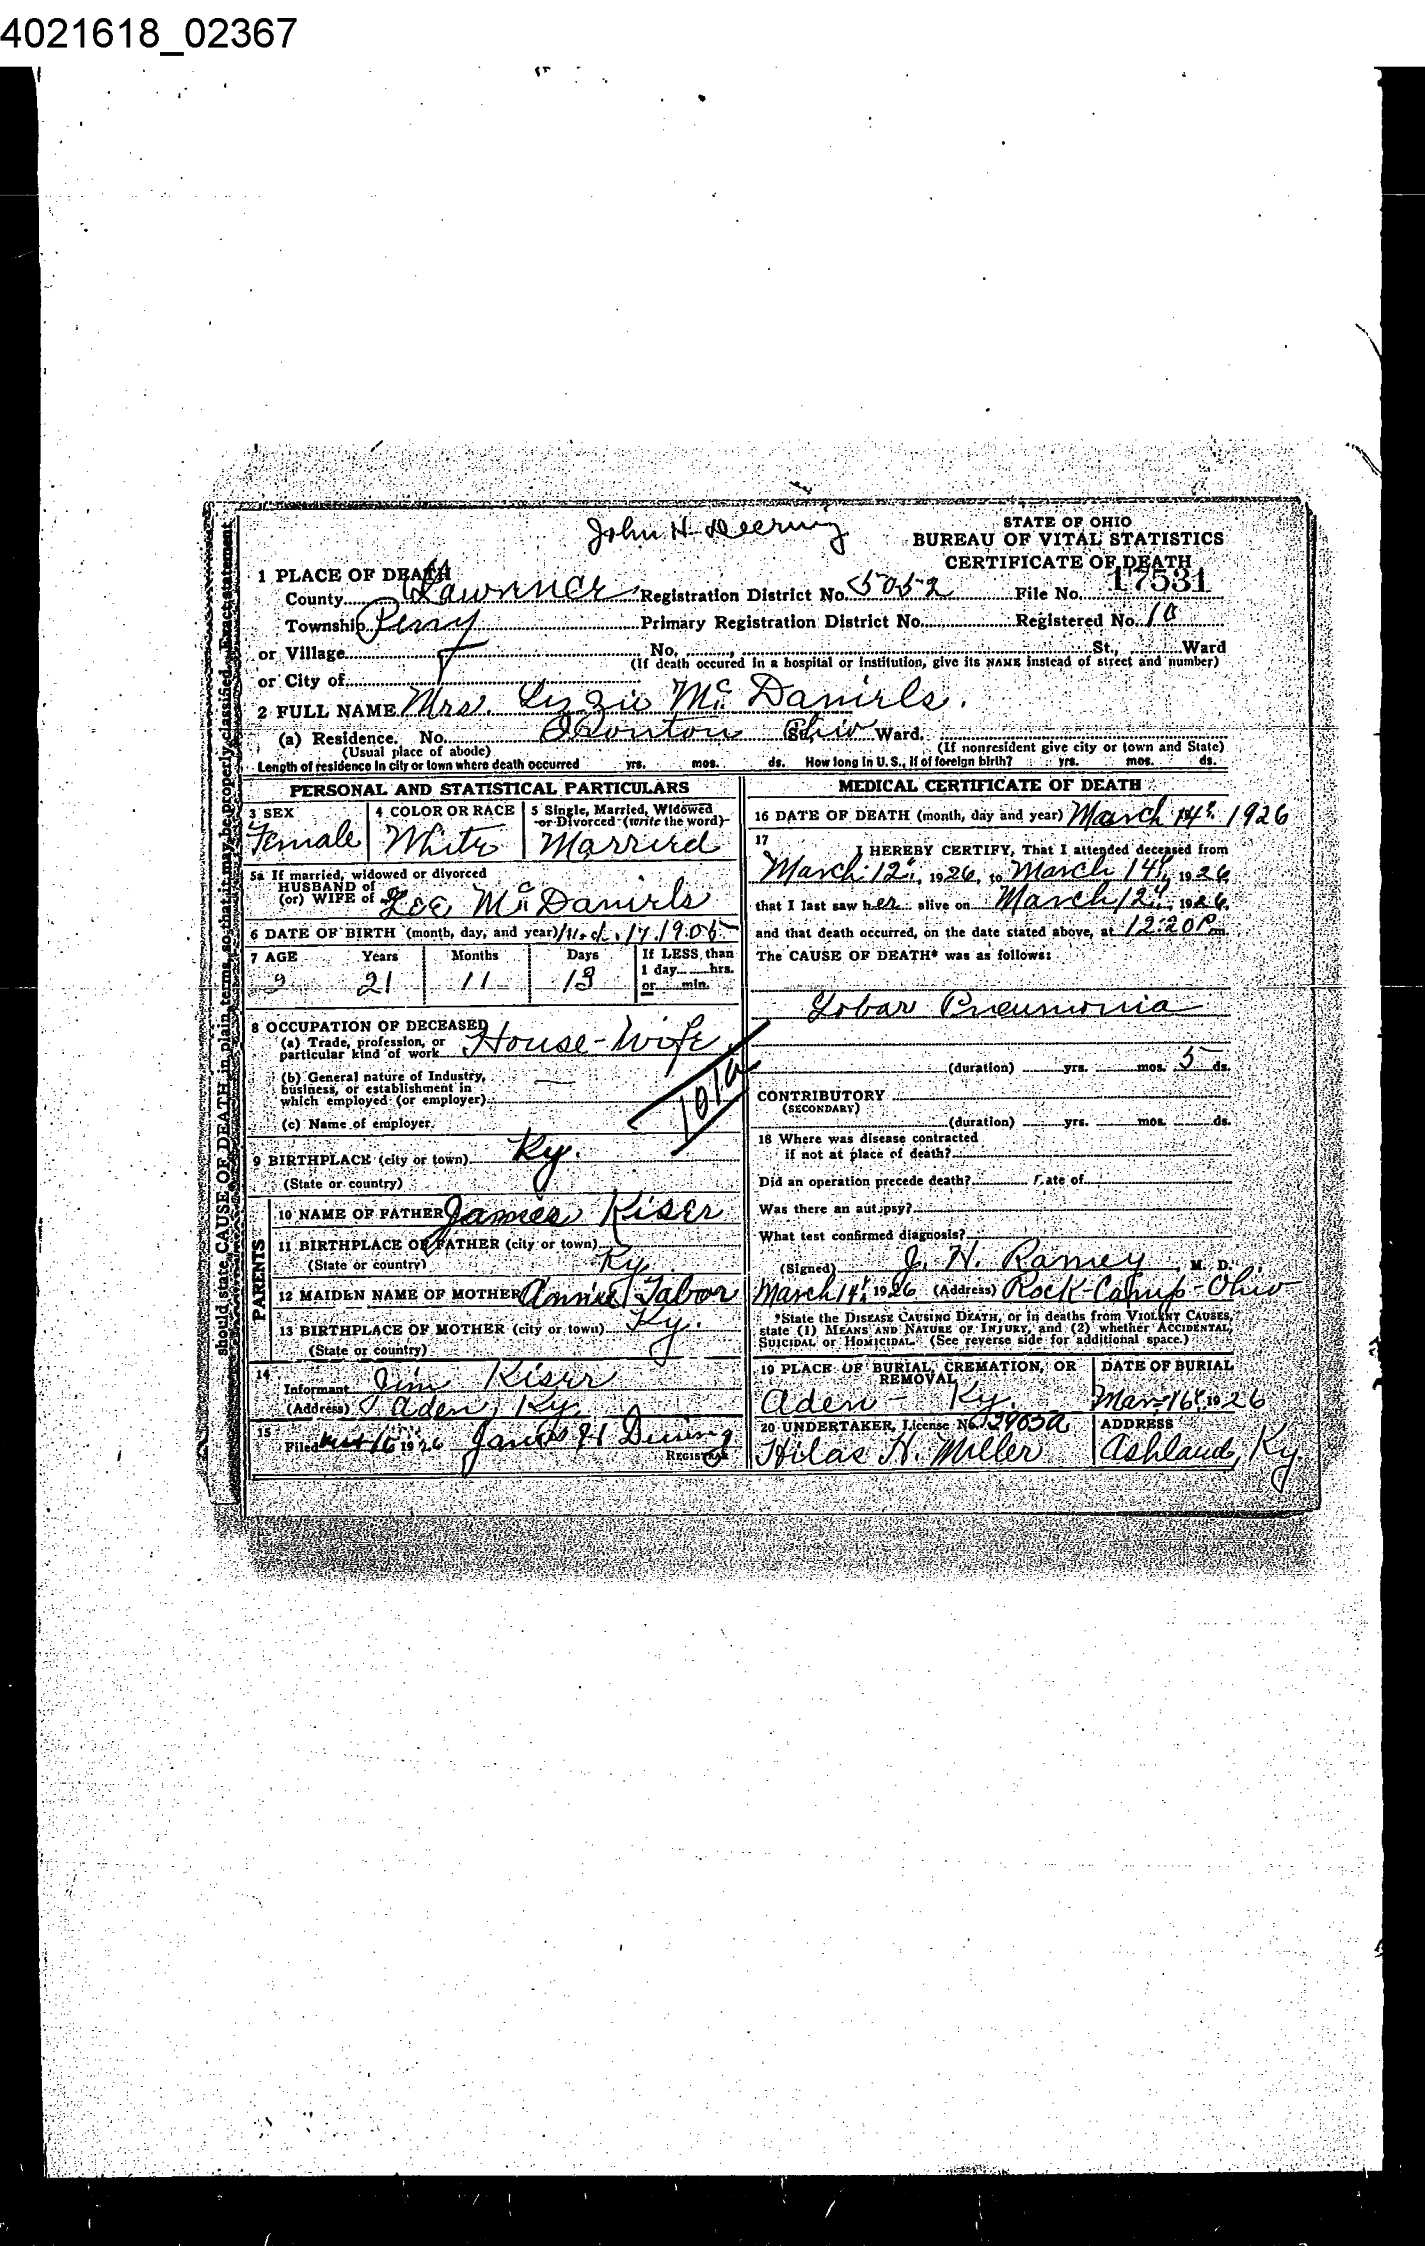 4021618_02367
John H. Deering
STATE OF OHIO
BUREAU OF VITAL STATISTICS
CERTIFICATE OF DEATH
1 PLACE OF DEATH
County Lawrence Registration District No. 5052 File No. 17531
Township Perry Primary Registration District No. Registered No. 10
or Village No. St., Ward
(If death occured in a hospital or institution, give its NAME instead of street and number)
or City of
2 FULL NAME Mrs. Lizzie Mc Daniels.
(a) Residence. No. Ironton Ohio St. Ward.
(Usual place of abode) (If nonresident give city or town and State)
Length of residence in city or town where death occurred yrs. mos. ds. How long in U. S., if of foreign birth? yrs. mos. ds.
PERSONAL AND STATISTICAL PARTICULARS
3 SEX 4 COLOR OR RACE 5 Single, Married, Widowed
or Divorced (write the word)
Female White Married
5a If married, widowed or divorced
HUSBAND of
(or) WIFE of Lee Mc Daniels
6 DATE OF BIRTH (month, day, and year) 17.1905
7 AGE Years Months Days If LESS than
1 day hrs.
or min.
21 11 13
8 OCCUPATION OF DECEASED
(a) Trade, profession, or
particular kind of work House-Wife
(b) General nature of Industry,
business, or establishment in
which employed (or employer)
(c) Name of employer
101a
9 BIRTHPLACE (city or town) Ky.
(State or country)
PARENTS
10 NAME OF FATHER James Kiser
11 BIRTHPLACE OF FATHER (city or town)
(State or country) Ky.
12 MAIDEN NAME OF MOTHER Annie Tabor
13 BIRTHPLACE OF MOTHER (city or town) Ky.
(State or country)
14
Informant Jim Kiser
(Address) Aden, Ky.
15
Filed 16 1926
REGISTRAR
MEDICAL CERTIFICATE OF DEATH
16 DATE OF DEATH (month, day and year) March 14th 1926
17
I HEREBY CERTIFY, That I attended deceased from
March 12th, 1926, to March 14th, 1926
that I last saw her alive on March 12th, 1926,
and that death occurred, on the date stated above, at 12:20 P m.
The CAUSE OF DEATH* was as follows:
Lobar Pneumonia
(duration) yrs. mos. 5 ds.
CONTRIBUTORY
(SECONDARY)
(duration) yrs. mos. ds.
18 Where was disease contracted
if not at place of death?
Did an operation precede death? Date of
Was there an autopsy?
What test confirmed diagnosis?
(Signed) J. H. Ramey, M. D.
March 14th 1926 (Address) Rock-Camp-Ohio
*State the DISEASE CAUSING DEATH, or in deaths from VIOLENT CAUSES,
state (1) MEANS AND NATURE OF INJURY, and (2) whether ACCIDENTAL,
SUICIDAL or HOMICIDAL. (See reverse side for additional space.)
19 PLACE OF BURIAL, CREMATION, OR
REMOVAL DATE OF BURIAL
Aden - Ky. Mar-16th, 1926
20 UNDERTAKER, License No. 2903a ADDRESS
Hilas H. Miller Ashland, Ky.
should state CAUSE OF DEATH in plain terms, so that it may be properly classified. Exact statement